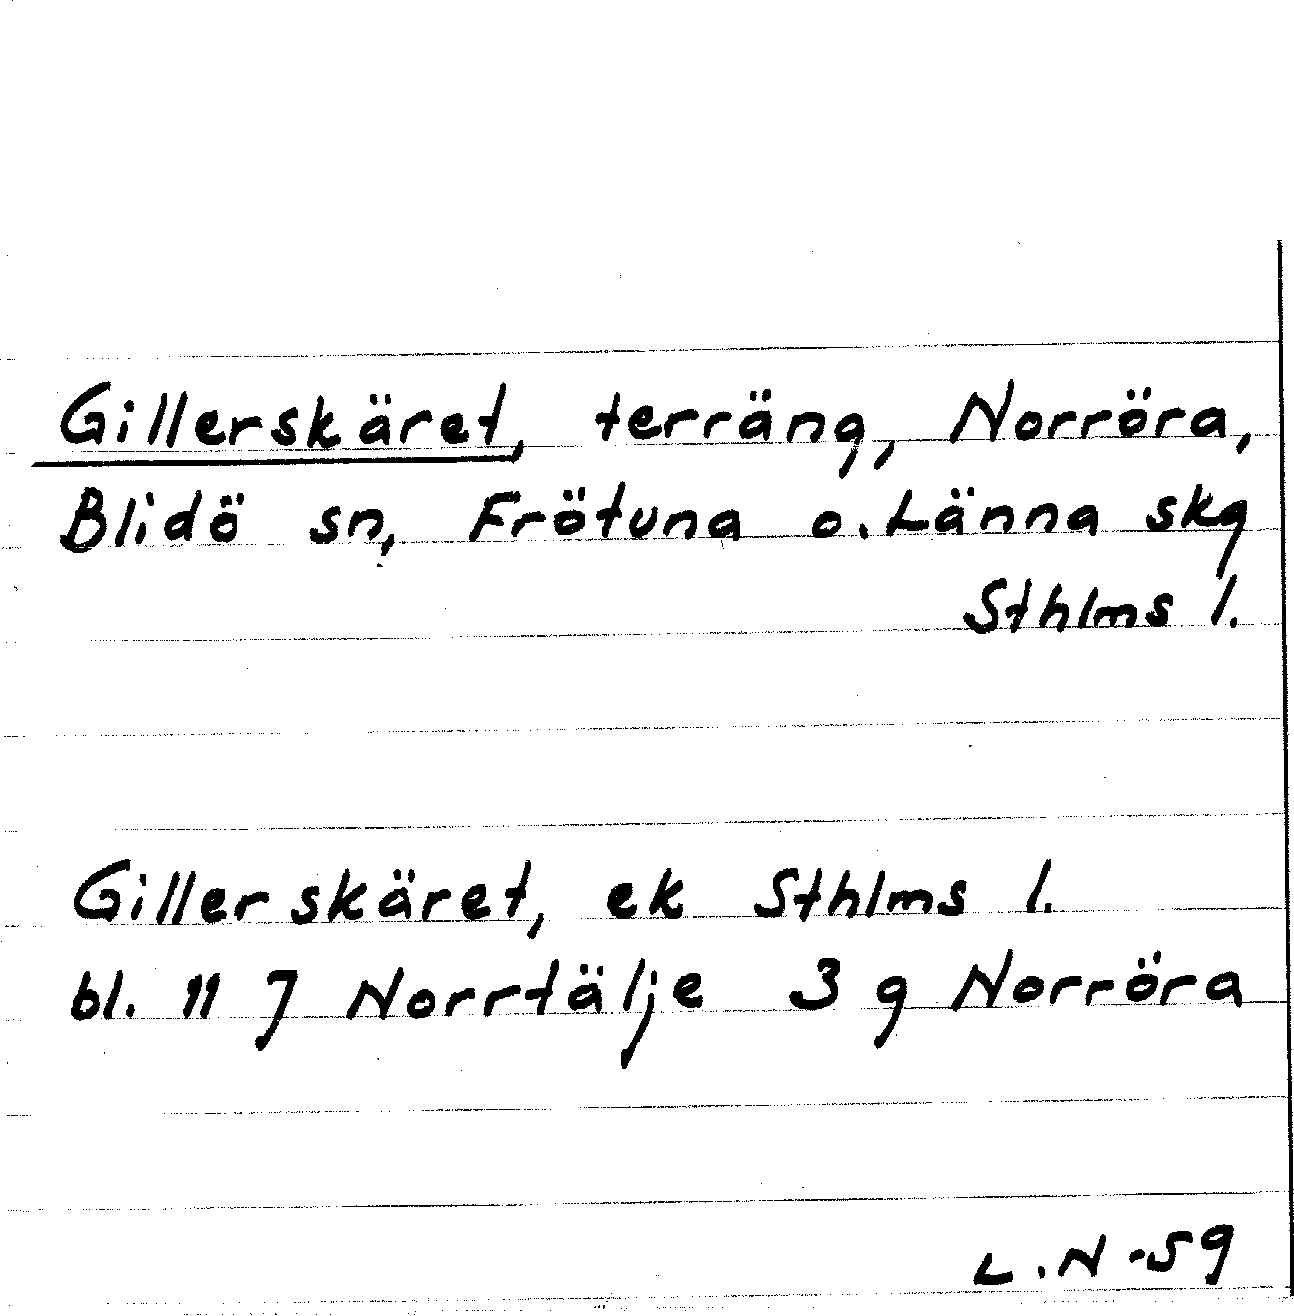 Gillerskäret, terräng, Norröra,
Blidö sn, Frötuna o. Länna skg
Sthlms l.
Gillerskäret, ek Sthlms l.
bl. 11 J Norrtälje 3 g Norröra
L.N -59